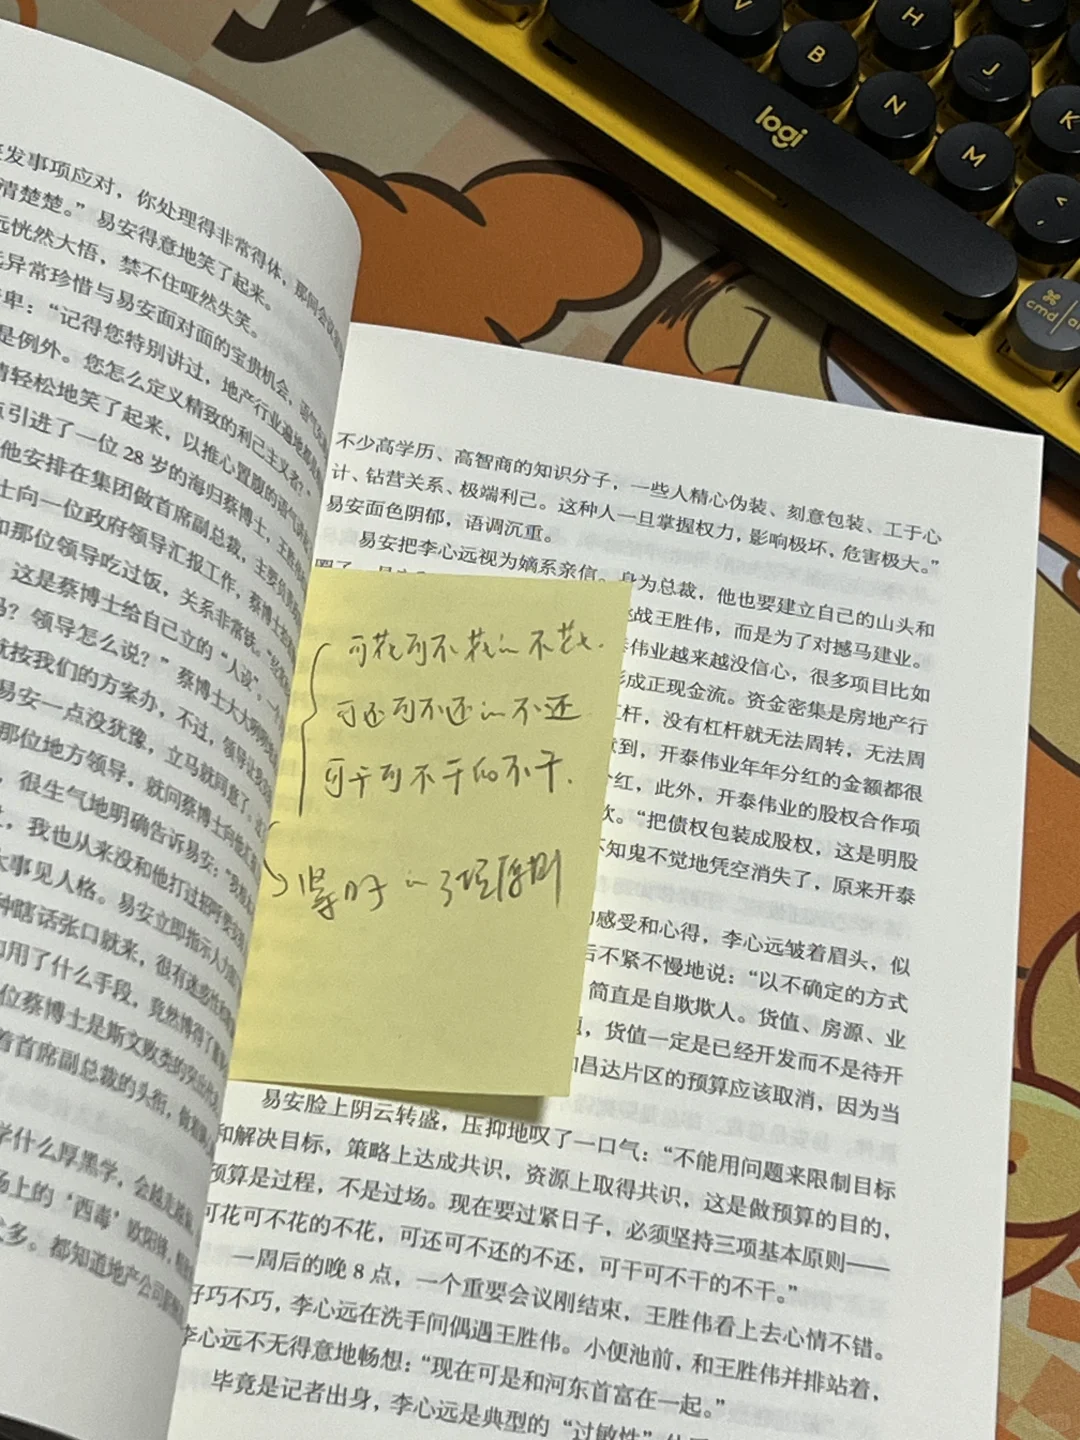 发事项应对，你处理得非常得体，那间会议
清楚楚。”易安得意地笑了起来。
远恍然大悟，禁不住哑然失笑。
异常珍惜与易安面对面的宝贵机会，语气
卑：“记得您特别讲过，地产行业遍地都
是例外。您怎么定义精致的利己主义者？”
情轻松地笑了起来，以推心置腹的语气
点引进了一位28岁的海归蔡博士，王胜
他安排在集团做首席副总裁，主要负责
士向一位政府领导汇报工作，蔡博士
和那位领导吃过饭，关系非常铁。
这是蔡博士给自己立的“人设”。一个
吗？领导怎么说？”蔡博士大大咧咧地
就按我们的方案办，不过，领导让
易安一点没犹豫，立马就同意了。
那位地方领导，就问蔡博士向他
，很生气地明确告诉易安：
，我也从来没和他打过招呼
大事见人格。易安立即指示人力
种瞎话张口就来，很有迷惑性
用了什么手段，竟然博得了
位蔡博士是斯文败类的突出代
着首席副总裁的头衔，
学什么厚黑学，会
场上的‘西毒’欧阳锋，
太多。都知道地产公司
不少高学历、高智商的知识分子，一些人精心伪装、刻意包装、工于心
计、钻营关系、极端利己。这种人一旦掌握权力，影响极坏，危害极大。”
易安面色阴郁，语调沉重。
易安把李心远视为嫡系亲信。身为总裁，他也要建立自己的山头和
挑战王胜伟，而是为了对撼马建业。
泰伟业越来越没信心，很多项目比如
形成正现金流。资金密集是房地产行
杠杆，没有杠杆就无法周转，无法周
到，开泰伟业年年分红的金额都很
分红，此外，开泰伟业的股权合作项
。“把债权包装成股权，这是明股
不知鬼不觉地凭空消失了，原来开泰
的感受和心得，李心远皱着眉头，似
后不紧不慢地说：“以不确定的方式
简直是自欺欺人。货值、房源、业
，货值一定是已经开发而不是待开
和昌达片区的预算应该取消，因为当
可花可不花的不花.
可还可不还的不还
可干可不干的不干.
紧日子的三项原则
易安脸上阴云转盛，压抑地叹了一口气：“不能用问题来限制目标
和解决目标，策略上达成共识，资源上取得共识，这是做预算的目的，
预算是过程，不是过场。现在要过紧日子，必须坚持三项基本原则——
可花可不花的不花，可还可不还的不还，可干可不干的不干。”
一周后的晚8点，一个重要会议刚结束，王胜伟看上去心情不错。
好巧不巧，李心远在洗手间偶遇王胜伟。小便池前，和王胜伟并排站着，
李心远不无得意地畅想：“现在可是和河东首富在一起。”
毕竟是记者出身，李心远是典型的“过敏性”
logi
V
B
H
N
J
M
K
<
,
⌘
cmd